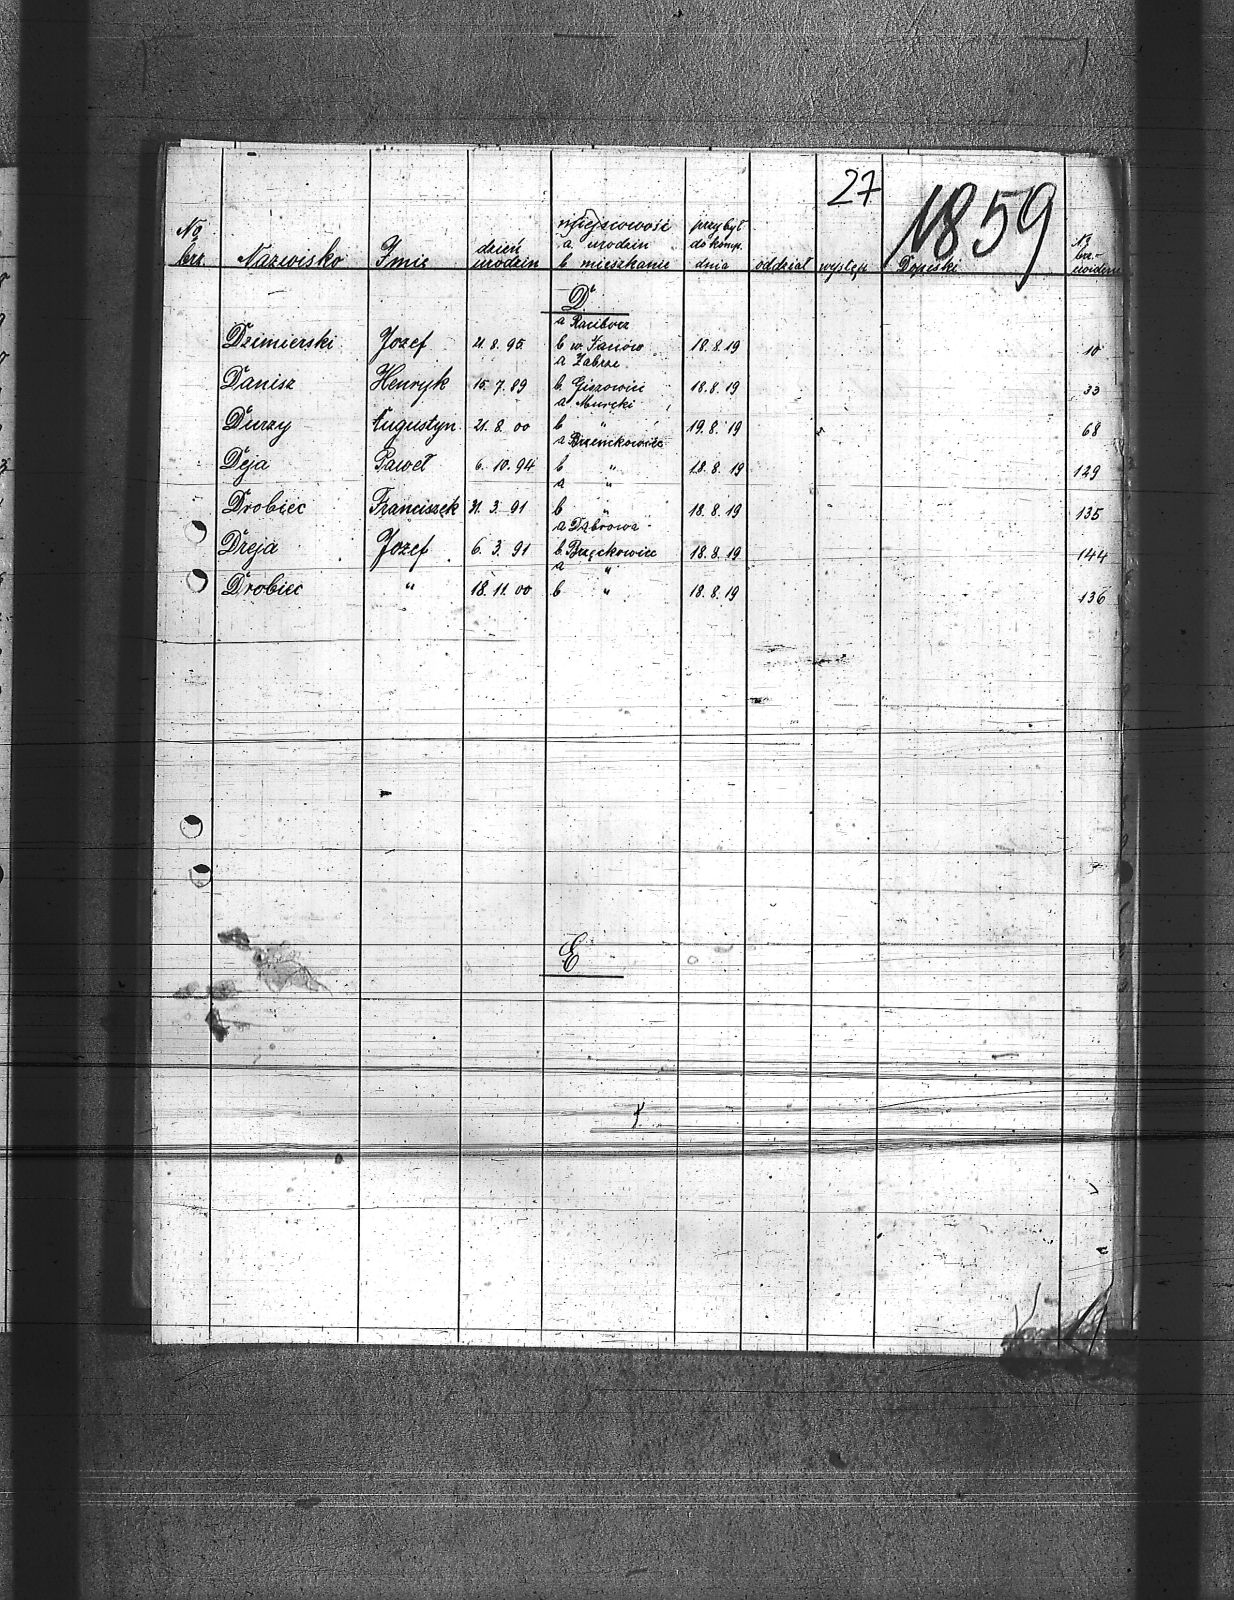 27
1859
No brz. Nazwisko Imię dzień urodzin miejscowość a urodzin b mieszkanie przybył do komp. dnia oddział występ Dopiski No brz.
D.
a Racibórz
Dzimierski Józef 21.8.95 b w. Janów 18.8.19 10
a Zabrze
Danisz Henryk 15.7.89 b Giszowiec 18.8.19 33
a Murcki
Durzy Augustyn 21.8.00 b " 19.8.19 68
a Brzenckowice
Deja Paweł 6.10.94 b " 18.8.19 129
a "
Drobiec Franciszek 21.3.91 b " 18.8.19 135
a Dąbrowa
Dreja Józef 6.3.91 b Brzęckowice 18.8.19 144
a "
Drobiec " 18.11.00 b " 18.8.19 136
E